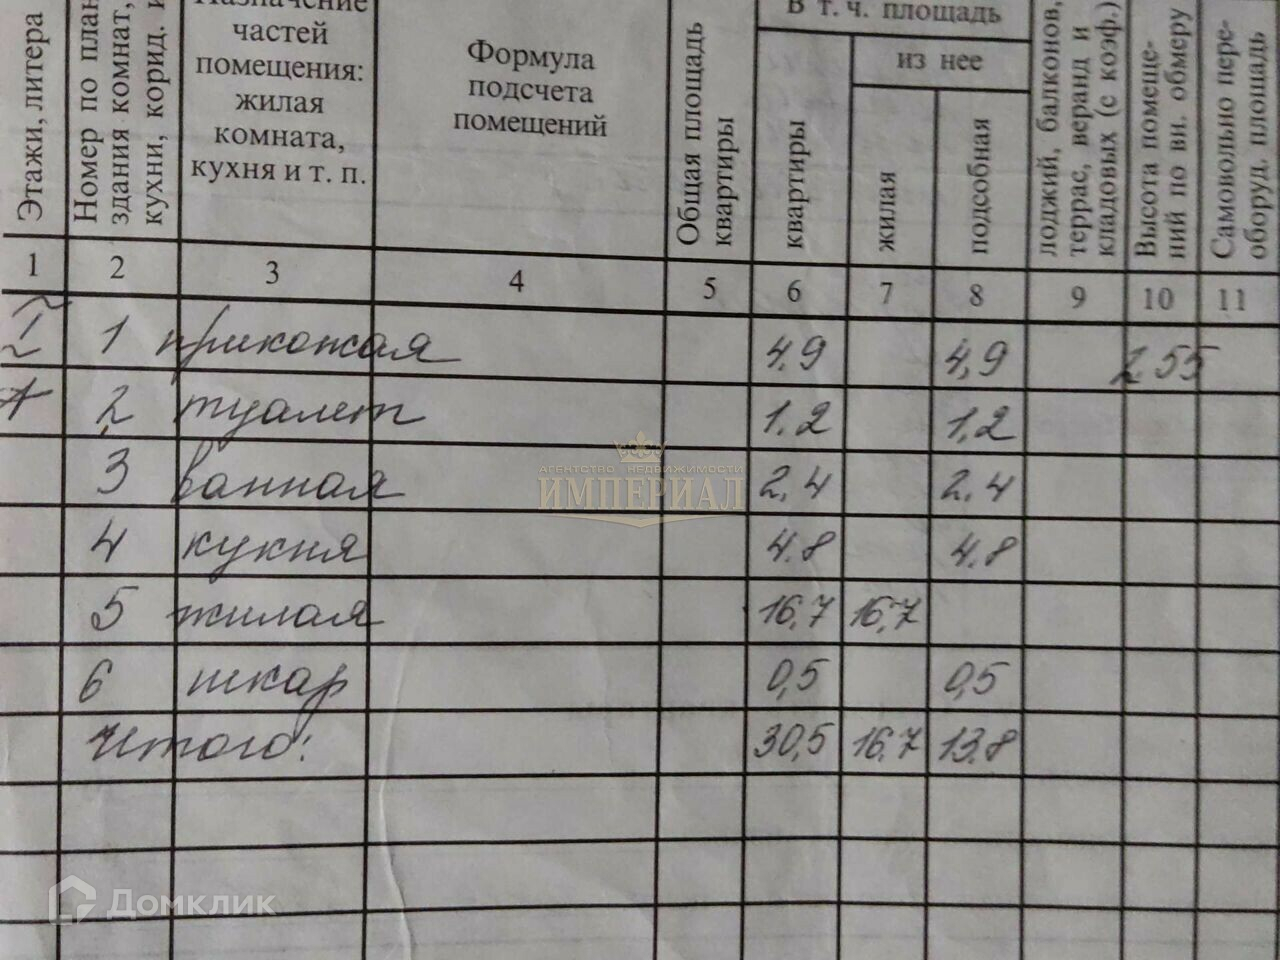 Этажи, литера
Номер по план
здания комнат,
кухни, корид. и
Назначение
частей
помещения:
жилая
комната,
кухня и т. п.
Формула
подсчета
помещений
Общая площадь
квартиры
В т. ч. площадь
квартиры
из нее
жилая
подсобная
лоджий, балконов,
террас, веранд и
кладовых (с коэф.)
Высота помеще-
ний по вн. обмеру
Самовольно пере-
оборуд. площадь
1 2 3 4 5 6 7 8 9 10 11
1 1 прихожая 4,9 4,9 2,55
А 2 туалет 1,2 1,2
3 ванная 2,4 2,4
4 кухня 4,8 4,8
5 жилая 16,7 16,7
6 шкаф 0,5 0,5
Итого: 30,5 16,7 13,8
АГЕНТСТВО НЕДВИЖИМОСТИ
ИМПЕРИАЛ
Домклик